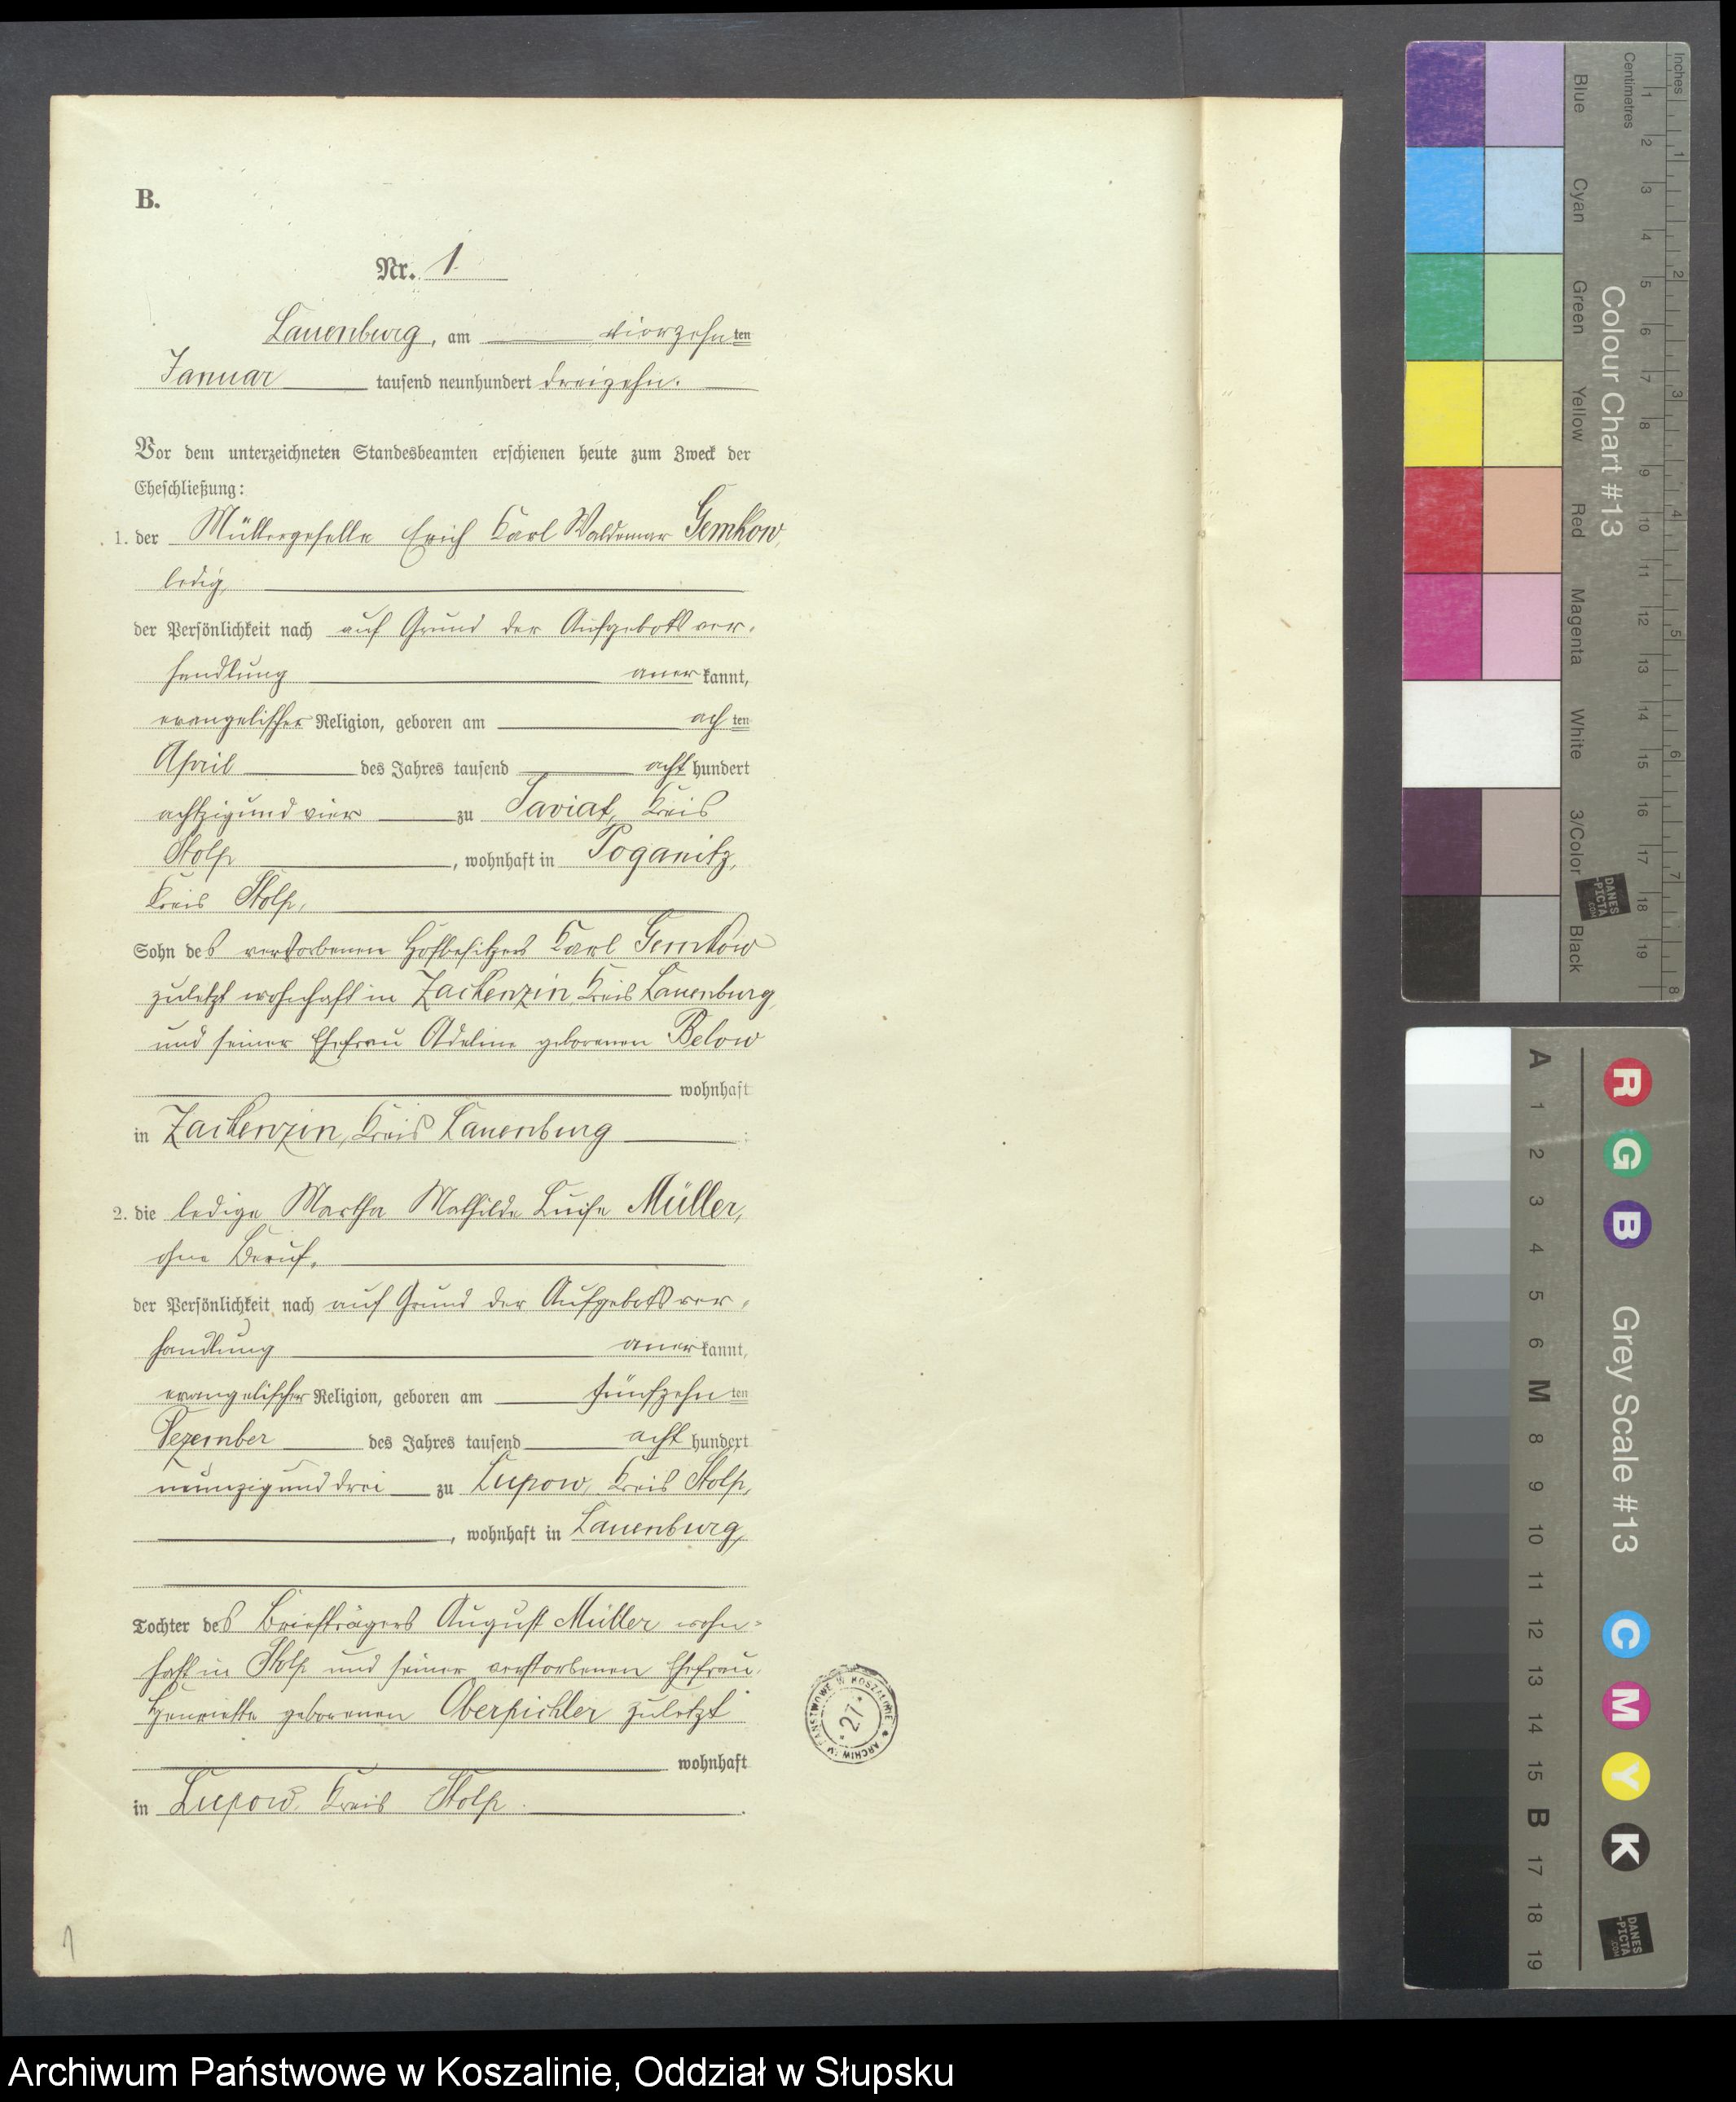 B.
Nr. 1.
Lauenburg, am vierzehnten
Januar tausend neunhundert dreizehn.
Vor dem unterzeichneten Standesbeamten erschienen heute zum Zweck der
Eheschließung:
1. der Müllergeselle Erich Karl Waldemar Gemkow,
ledig,
der Persönlichkeit nach auf Grund der Aufgebotsver-
handlung anerkannt,
evangelischer Religion, geboren am achten
April des Jahres tausend acht hundert
achtzigundvier zu Saviat, Kreis
Stolp, wohnhaft in Poganitz,
Kreis Stolp,
Sohn des verstorbenen Hofbesitzers Karl Gemkow
zuletzt wohnhaft in Zackenzin, Kreis Lauenburg,
und seiner Ehefrau Adeline geborenen Below
wohnhaft
in Zackenzin, Kreis Lauenburg;
2. die ledige Martha Mathilde Luise Müller,
ohne Beruf,
der Persönlichkeit nach auf Grund der Aufgebotsver-
handlung anerkannt,
evangelischer Religion, geboren am fünfzehnten
Dezember des Jahres tausend acht hundert
neunzigunddrei zu Lupow, Kreis Stolp,
, wohnhaft in Lauenburg,
Tochter des Briefträgers August Müller wohn-
haft in Stolp und seiner verstorbenen Ehefrau
Henriette geborenen Oberpichler zuletzt
wohnhaft
in Lupow, Kreis Stolp.
ARCHIWUM PAŃSTWOWE W KOSZALINIE
* 27 *
1
Inches
Centimetres
Colour Chart #13
Blue
Cyan
Green
Yellow
Red
Magenta
White
3/Color
Black
1 2 3 4 5 6 7 8 9 10 11 12 13 14 15 16 17 18 19
1 2 3 4 5 6 7 8
DANES
-PICTA
.COM
Grey Scale #13
A 1 2 3 4 5 6 M 8 9 10 11 12 13 14 15 B 17 18 19
R G B C M Y K
DANES
-PICTA
.COM
Archiwum Państwowe w Koszalinie, Oddział w Słupsku